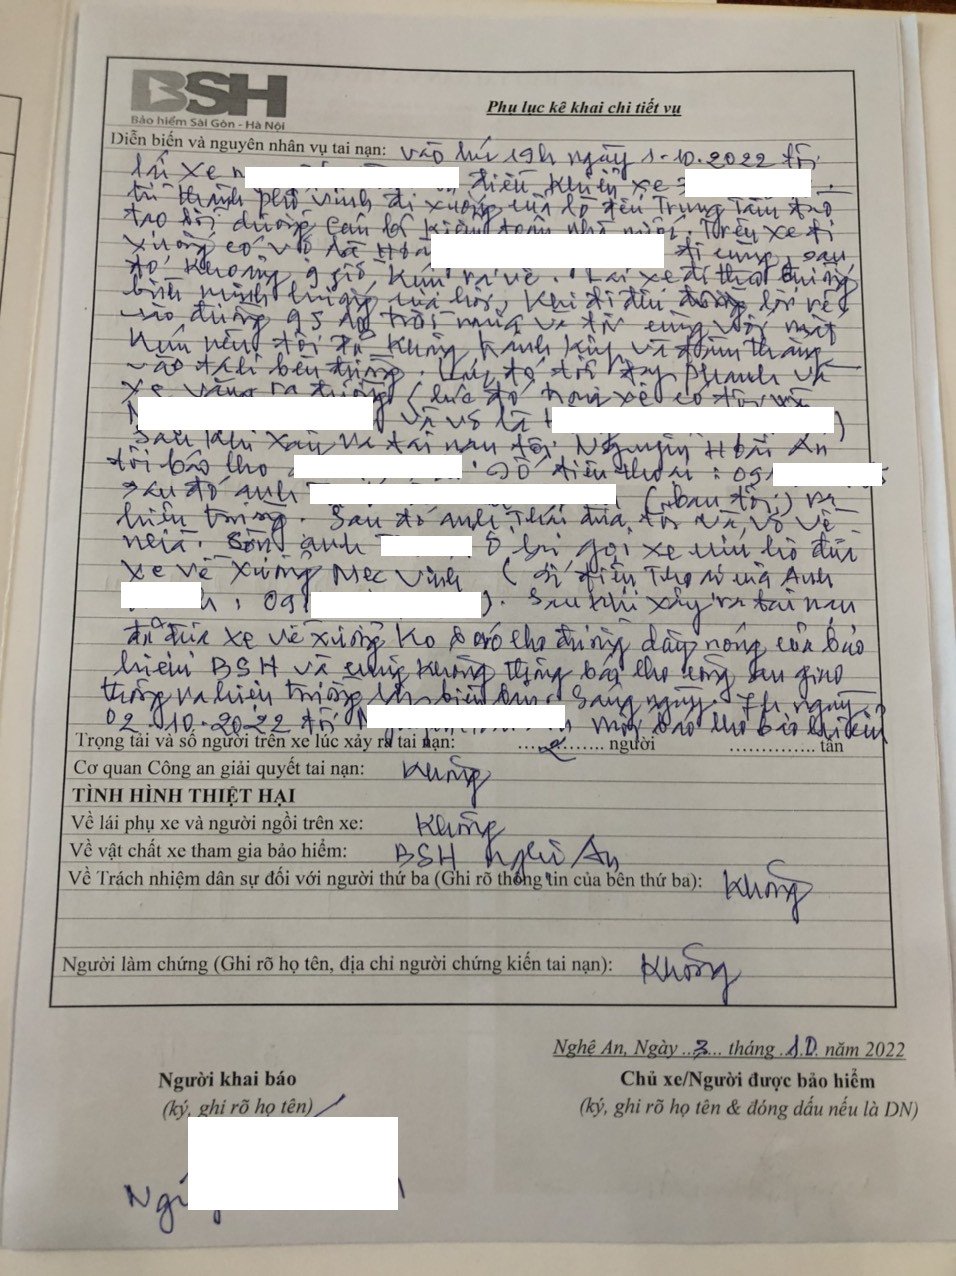 BSH
Bảo hiểm Sài Gòn - Hà Nội
Phụ lục kê khai chi tiết vụ
Diễn biến và nguyên nhân vụ tai nạn: vào lúc 19h ngày 1.10.2022 tôi
lái xe điều khiển xe
từ thành phố vinh đi xuống cửa lò đến Trung Tâm đào
tạo bồi dưỡng cán bộ kiểm toán nhà nước. Trên xe đi
xuống có vợ là Hoà đi cùng, sau
đó khoảng 9 giờ ra về. Lái xe đi theo đường
bình minh hướng cửa hội, khi đi đến đường lối rẽ
vào đường 95 trời mưa và tôi cũng
nên tôi đã không kịp và đâm thẳng
vào bên đường. Lúc đó tôi phanh và
xe văng ra đường (lúc đó trong xe có tôi
và vợ là
Sau khi xảy ra tai nạn tôi Nguyễn Hoài An
tôi báo cho số điện thoại: 09
sau đó anh (bạn tôi) ra
hiện trường. Sau đó anh Thái đưa tôi và vợ về
nhà. Còn anh ở lại gọi xe cứu hộ đưa
xe về xưởng Mec Vinh (số điện thoại của Anh
: 09 ). Sau khi xảy ra tai nạn
đã đưa xe về xưởng ko báo cho đường dây nóng của bảo
hiểm BSH và cũng không thông báo cho công an giao
thông ra hiện trường biên bản. Sáng ngày 7h ngày
02.10.2022 tôi mới báo cho bảo hiểm
Trọng tải và số người trên xe lúc xảy ra tai nạn: 2 người .............. tấn
Cơ quan Công an giải quyết tai nạn: Không
TÌNH HÌNH THIỆT HẠI
Về lái phụ xe và người ngồi trên xe: Không
Về vật chất xe tham gia bảo hiểm: BSH Nghệ An
Về Trách nhiệm dân sự đối với người thứ ba (Ghi rõ thông tin của bên thứ ba): Không
Người làm chứng (Ghi rõ họ tên, địa chỉ người chứng kiến tai nạn): Không
Nghệ An, Ngày ..3... tháng .10. năm 2022
Người khai báo
Chủ xe/Người được bảo hiểm
(ký, ghi rõ họ tên)
(ký, ghi rõ họ tên & đóng dấu nếu là DN)